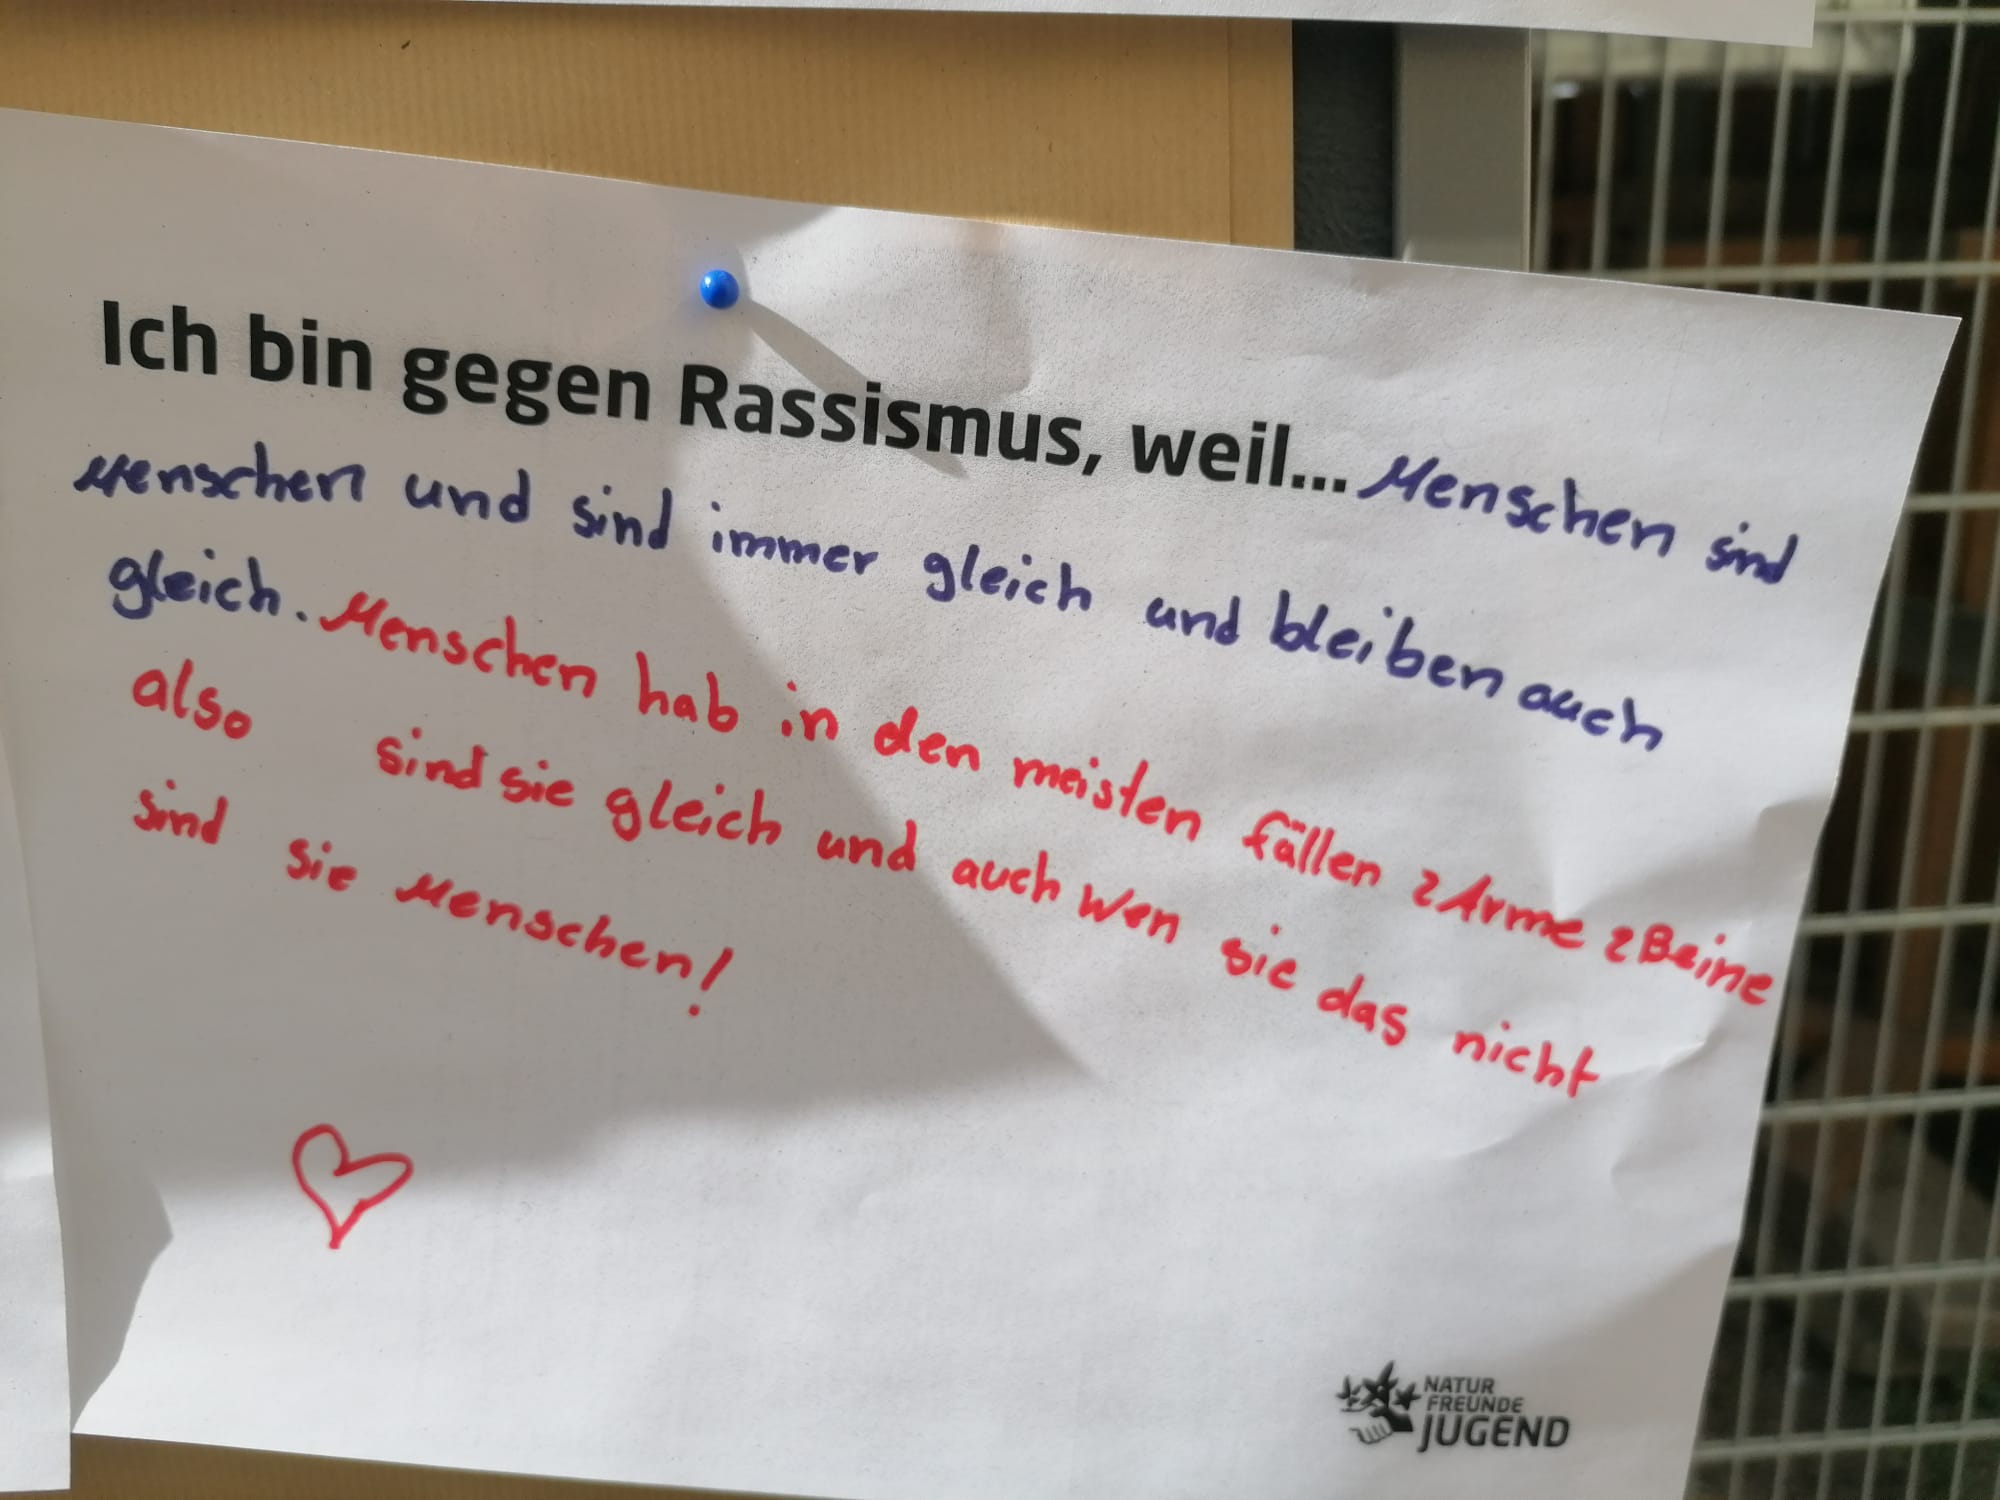 Ich bin gegen Rassismus, weil... Menschen sind
Menschen und sind immer gleich und bleiben auch
gleich. Menschen hab in den meisten fällen 2 Arme 2 Beine
also sind sie gleich und auch wen sie das nicht
sind sie Menschen!
NATUR
FREUNDE
JUGEND